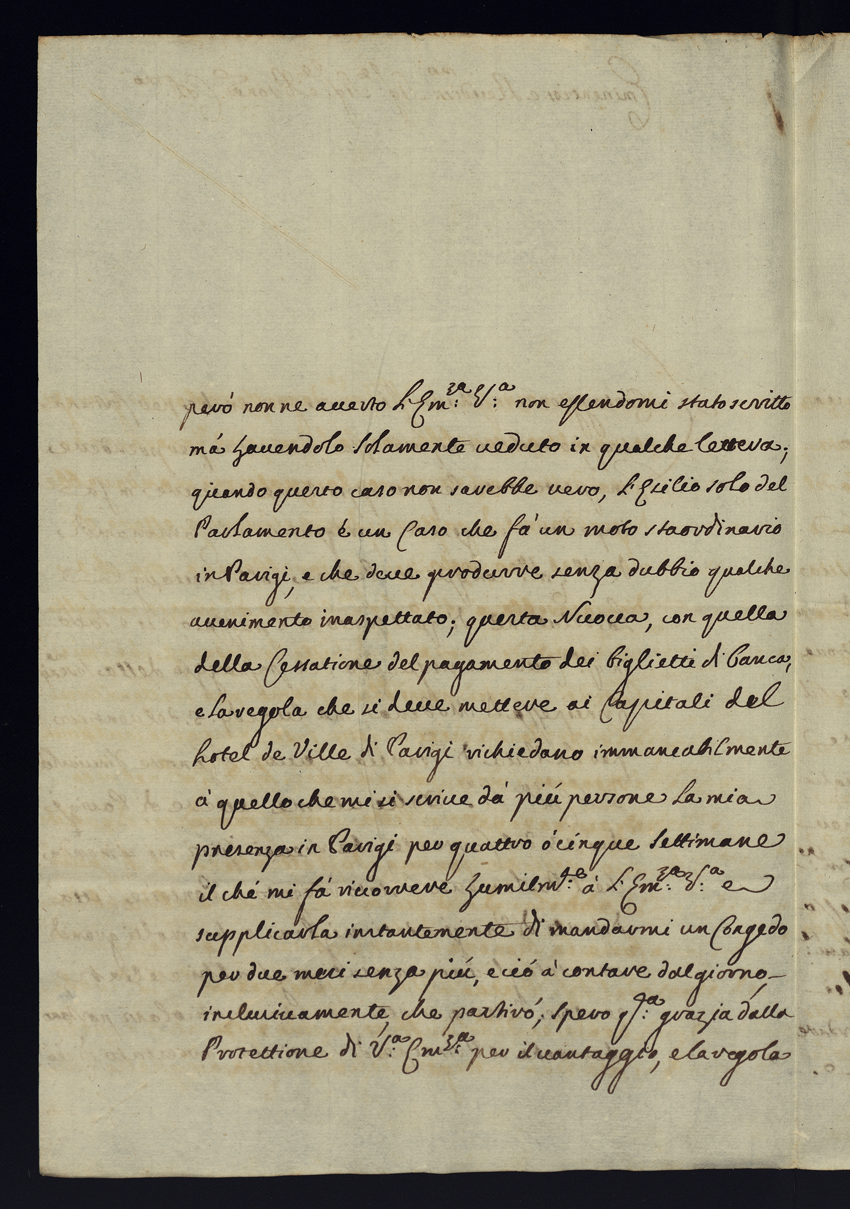 peró non ne auerto L'Em:za V:a non essendomi stato scritto
má hauendolo solamente ueduto in qualche lettera;
quando questo caso non sarebbe uero, L'Esilio solo del
Parlamento è un Caso che fá un moto staordinario
in Parigi, e che deue produrre senza dubbio qualche
auuenimento inaspettato; questa Nuoua, con quella
della Cessatione del pagamento dei biglietti di banca,
e la regola che si deue mettere ai Capitali del
hotel de Ville di Parigi richiedano immancabilmente
á quello che mi si scriue dá piú persone la mia
presenza in Parigi per quattro ó cinque Settimane
il ché mi fá ricorrere humilm:te á L'Em:za V:a e
supplicarla instantemente di mandarmi un Congedo
per due mesi senza piú, e ció á contare dal giorno,
inclusiuamente, che partiró; spero q:sta grazia dalla
Protettione di V:a Em:za per il uantaggio, e la regola